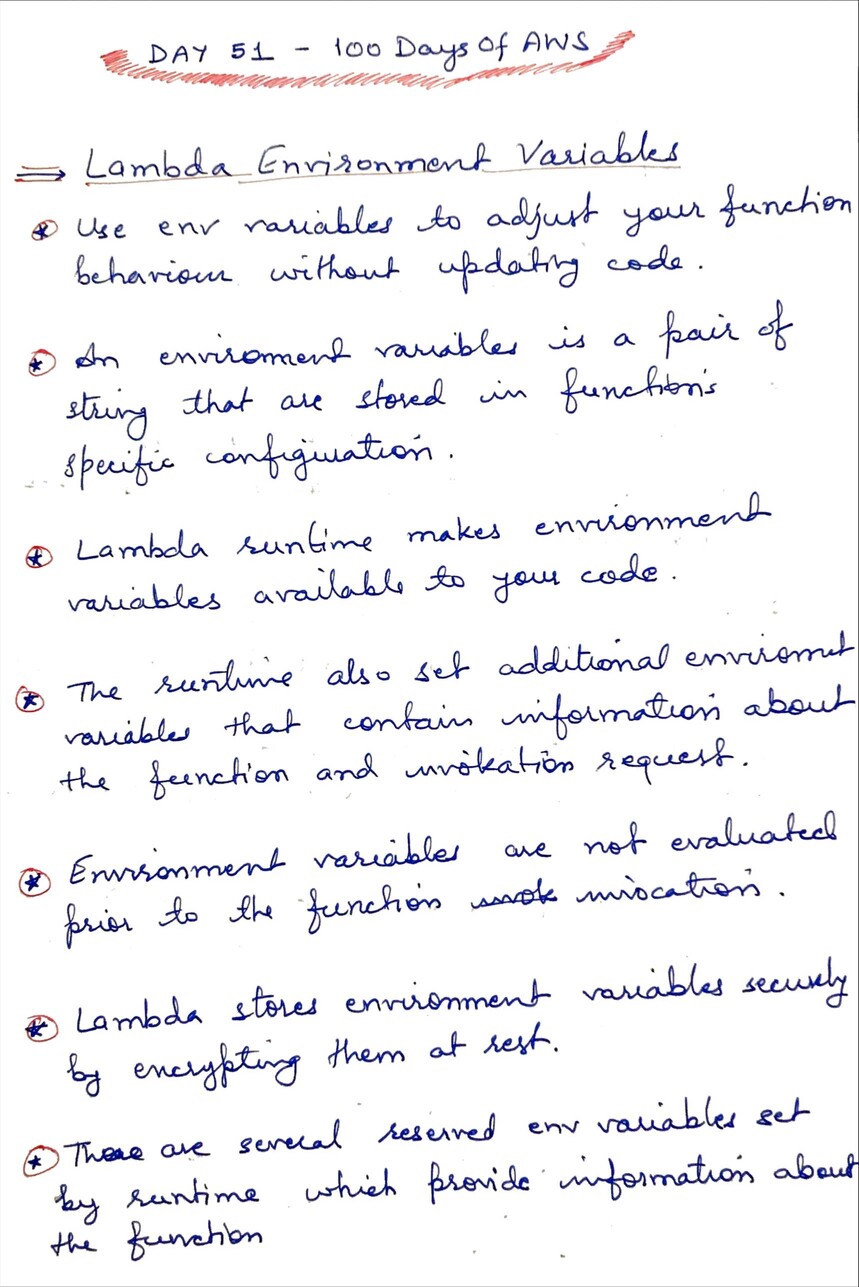 DAY 51 - 100 Days Of AWS
⇒ Lambda Environment Variables
* Use env variables to adjust your function
behaviour without updating code.
* An enviroment variables is a pair of
string that are stored in function's
specific configuration.
* Lambda runtime makes environment
variables available to your code.
* The runtime also set additional enviromnt
variables that contain information about
the function and invokation request.
* Environment variables are not evaluated
prior to the function invocation.
* Lambda stores environment variables securely
by encrypting them at rest.
* There are several reserved env variables set
by runtime which provide information about
the function